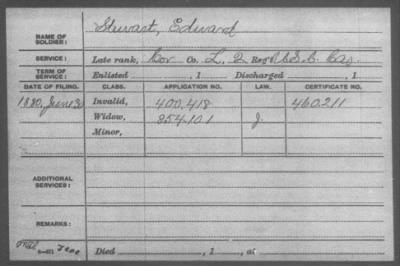 Stewart, Edward
NAME OF SOLDIER:
SERVICE: Late rank, Cor Co. L, 2 Reg't U.S.C. Cav.
TERM OF SERVICE: Enlisted , 1 Discharged , 1
DATE OF FILING. CLASS. APPLICATION NO. LAW. CERTIFICATE NO.
1880, June 30 Invalid, 400,418 460,211
Widow, 854,101 J.
Minor,
ADDITIONAL SERVICES:
REMARKS:
Died , 1 , at